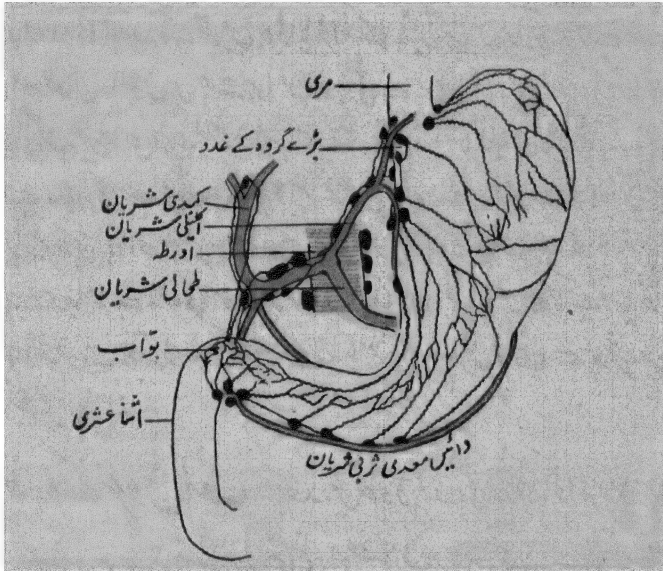 مری
بڑے گروہ کے غدد
کبدی شریان
اکلیلی شریان
اورطہ
طحالی شریان
بوّاب
اثنا عشری
دائیں معدی ثربی شریان